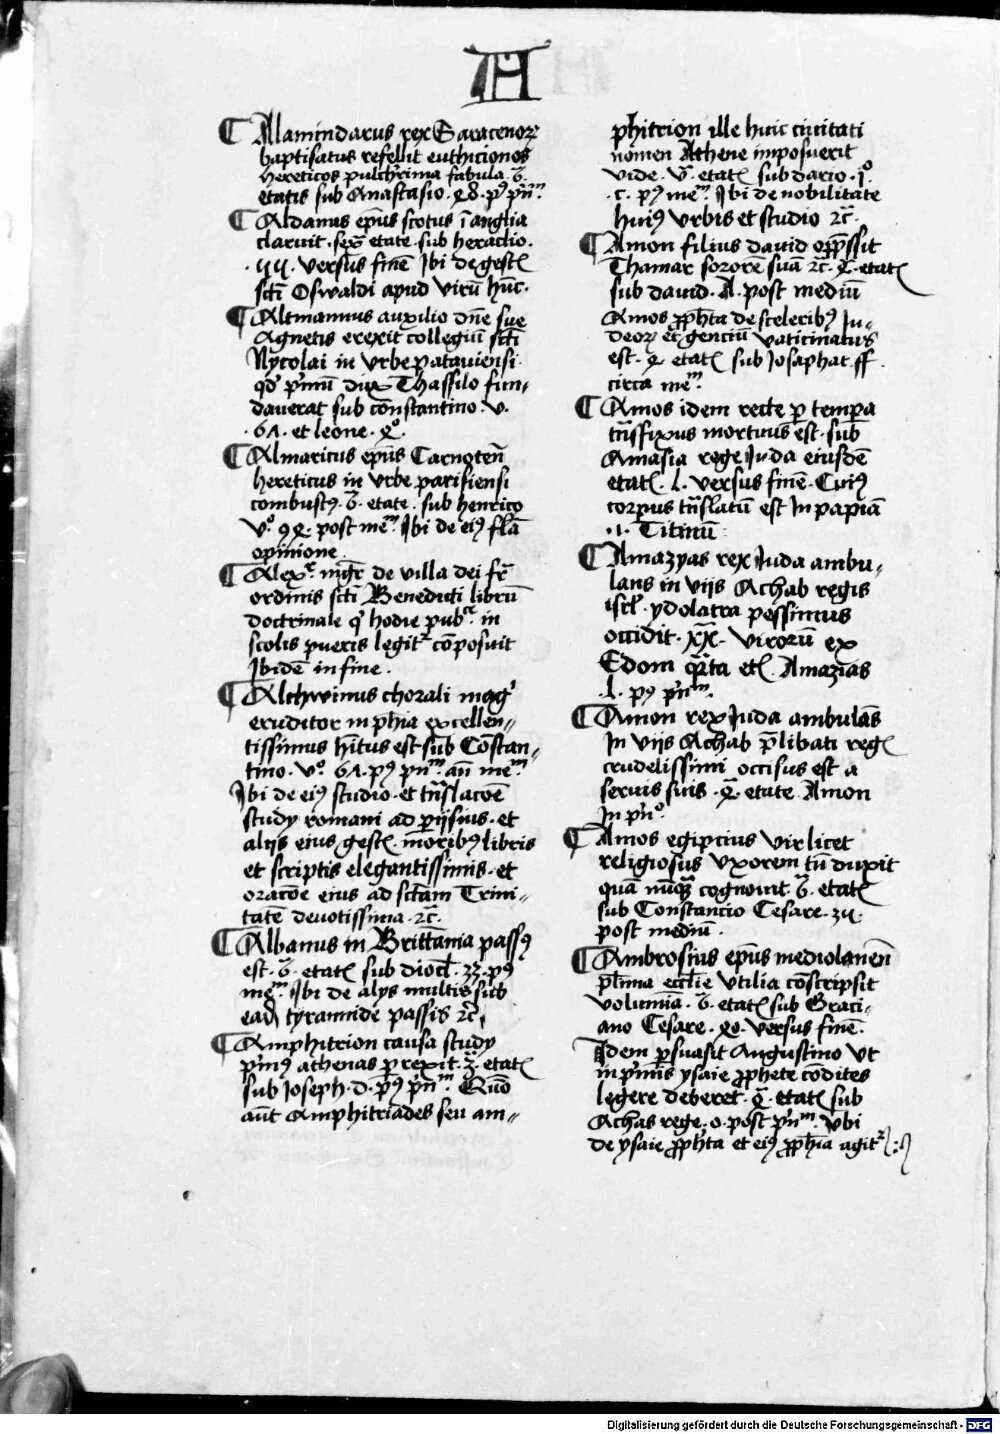 A
Alamindarus rex Saracenoꝝ
baptisatus refellit euthicianos
hereticos pulch'rima fabula · 6̄ ·
etatis sub Anastasio · 98 · pꝰ pn̄ᵐ
Aldanus ep̄us scotus ī anglia
claruit · sexᵗᵃ etate · sub heraclio ·
versus finē Ibi de gestꝭ
sc̄ti Oswaldi apud virū hūc ·
Altmannus auxilio dn̄e sue
Agnetis erexit collegiū sc̄ti
Nycolai in vrbe patauiensi
qd' p'mū dux Thassilo fun-
dauerat sub constantino · v ·
· 61 · et leone · 4ᵒ
Almaricus ep̄us Carnoteñ
hereticus in vrbe parisiensi
combustꝰ · 6̄ · etate · sub henrico
post meᵐ · Ibi de eiꝰ
opinione
Alexᵉʳ mḡr de villa dei fr̄
ordinis sc̄ti Benedicti librū
doctrinale q' hodie pub'ᶜᵉ in
scolis pueris legitᷣ cōposuit
Ibidē in fine ·
Alchwinus chorali mag'
eruditor in ph̄ia excellen-
tissimus hītus est sub Cōstan-
tino · vᵒ · 61 · pꝰ pn̄ᵐ · an̄ meᵐ
Ibi de eiꝰ studio · et tn̄slacōe
study romani ad parijsius · et
alijs eius gestꝭ · moribꝰ libris
et scriptis elegantissimis · et
oracōe eius ad sc̄tam Trini-
tatē deuotissima · ⁊c̄ ·
Albanus in Brittania passꝰ
est · 6̄ · etatꝭ sub diocl' · pꝰ
meᵐ · Ibi de alys multis sub
ead' tyrannide passis ⁊c̄
Amphitrion causa study
p'mꝰ athenas perrexit · 3̄ · etatꝭ
sub Joseph · d · pꝰ pn̄ᵐ Quō
aūt Amphitriades seu am-
phitrion ille huic ciuitati
nomen Athene imposuerit
vide · v̄ · etatꝭ sub dario · jᵒ ·
· c · pꝰ meᵐ · Ibi de nobilitate
huiꝰ vrbis et studio ⁊c̄ ·
Amon filius dauid opp̄ssit
Thamar sororē suā ⁊c̄ · 4 · etatꝭ
sub dauid · A · post mediū
Amos pp̄h'ta de sceleribꝰ Ju-
deoꝝ et genciū vaticinatus
est · 4 · etatꝭ sub Josaphat · ff ·
circa meᵐ
Amos idem recte per tempa
tn̄sfixus mortuus est · sub
Amasia rege Juda eiusdē
etatꝭ · l · versus finē · Cuiꝰ
corpus tn̄slatū est In papiā
· i · Titinū
Amazyas rex Juda ambu-
lans in vijs Achab regis
isrl' · ydolatra pessimus
occidit · XX · virorū ex
Edom · q̄rta etꝭ · Amazias
· l · pꝰ p'nᵐ ·
Amon rex Juda ambulās
In vijs Achab p̄libati regꝭ
crudelissimi occisus est a
seruis suis · 4̄ · etate Amon
In p'nᵒ ·
Amos egipcius vir licet
religiosus vxorem tn̄ duxit
quā nūq̄ cognouit · 6̄ · etatꝭ
sub Constancio Cesare ·
post mediū ·
Ambrosius ep̄us mediolanēn̄
pl'ima eccl'ie vtilia cōscripsit
volumīa · 6̄ · etatꝭ sub Graci-
ano Cesare · 90 · versus finē ·
Idem p'suasit Augustino vt
in p'mis ysaie pp̄hete cōdites
legere deberet · 4̄ · etatꝭ sub
Achas rege · o · post p'nᵐ · vbi
de ysaie pp̄h'ta et eiꝰ pp̄h'ia agitᷣ
Digitalisierung gefördert durch die Deutsche Forschungsgemeinschaft - DFG